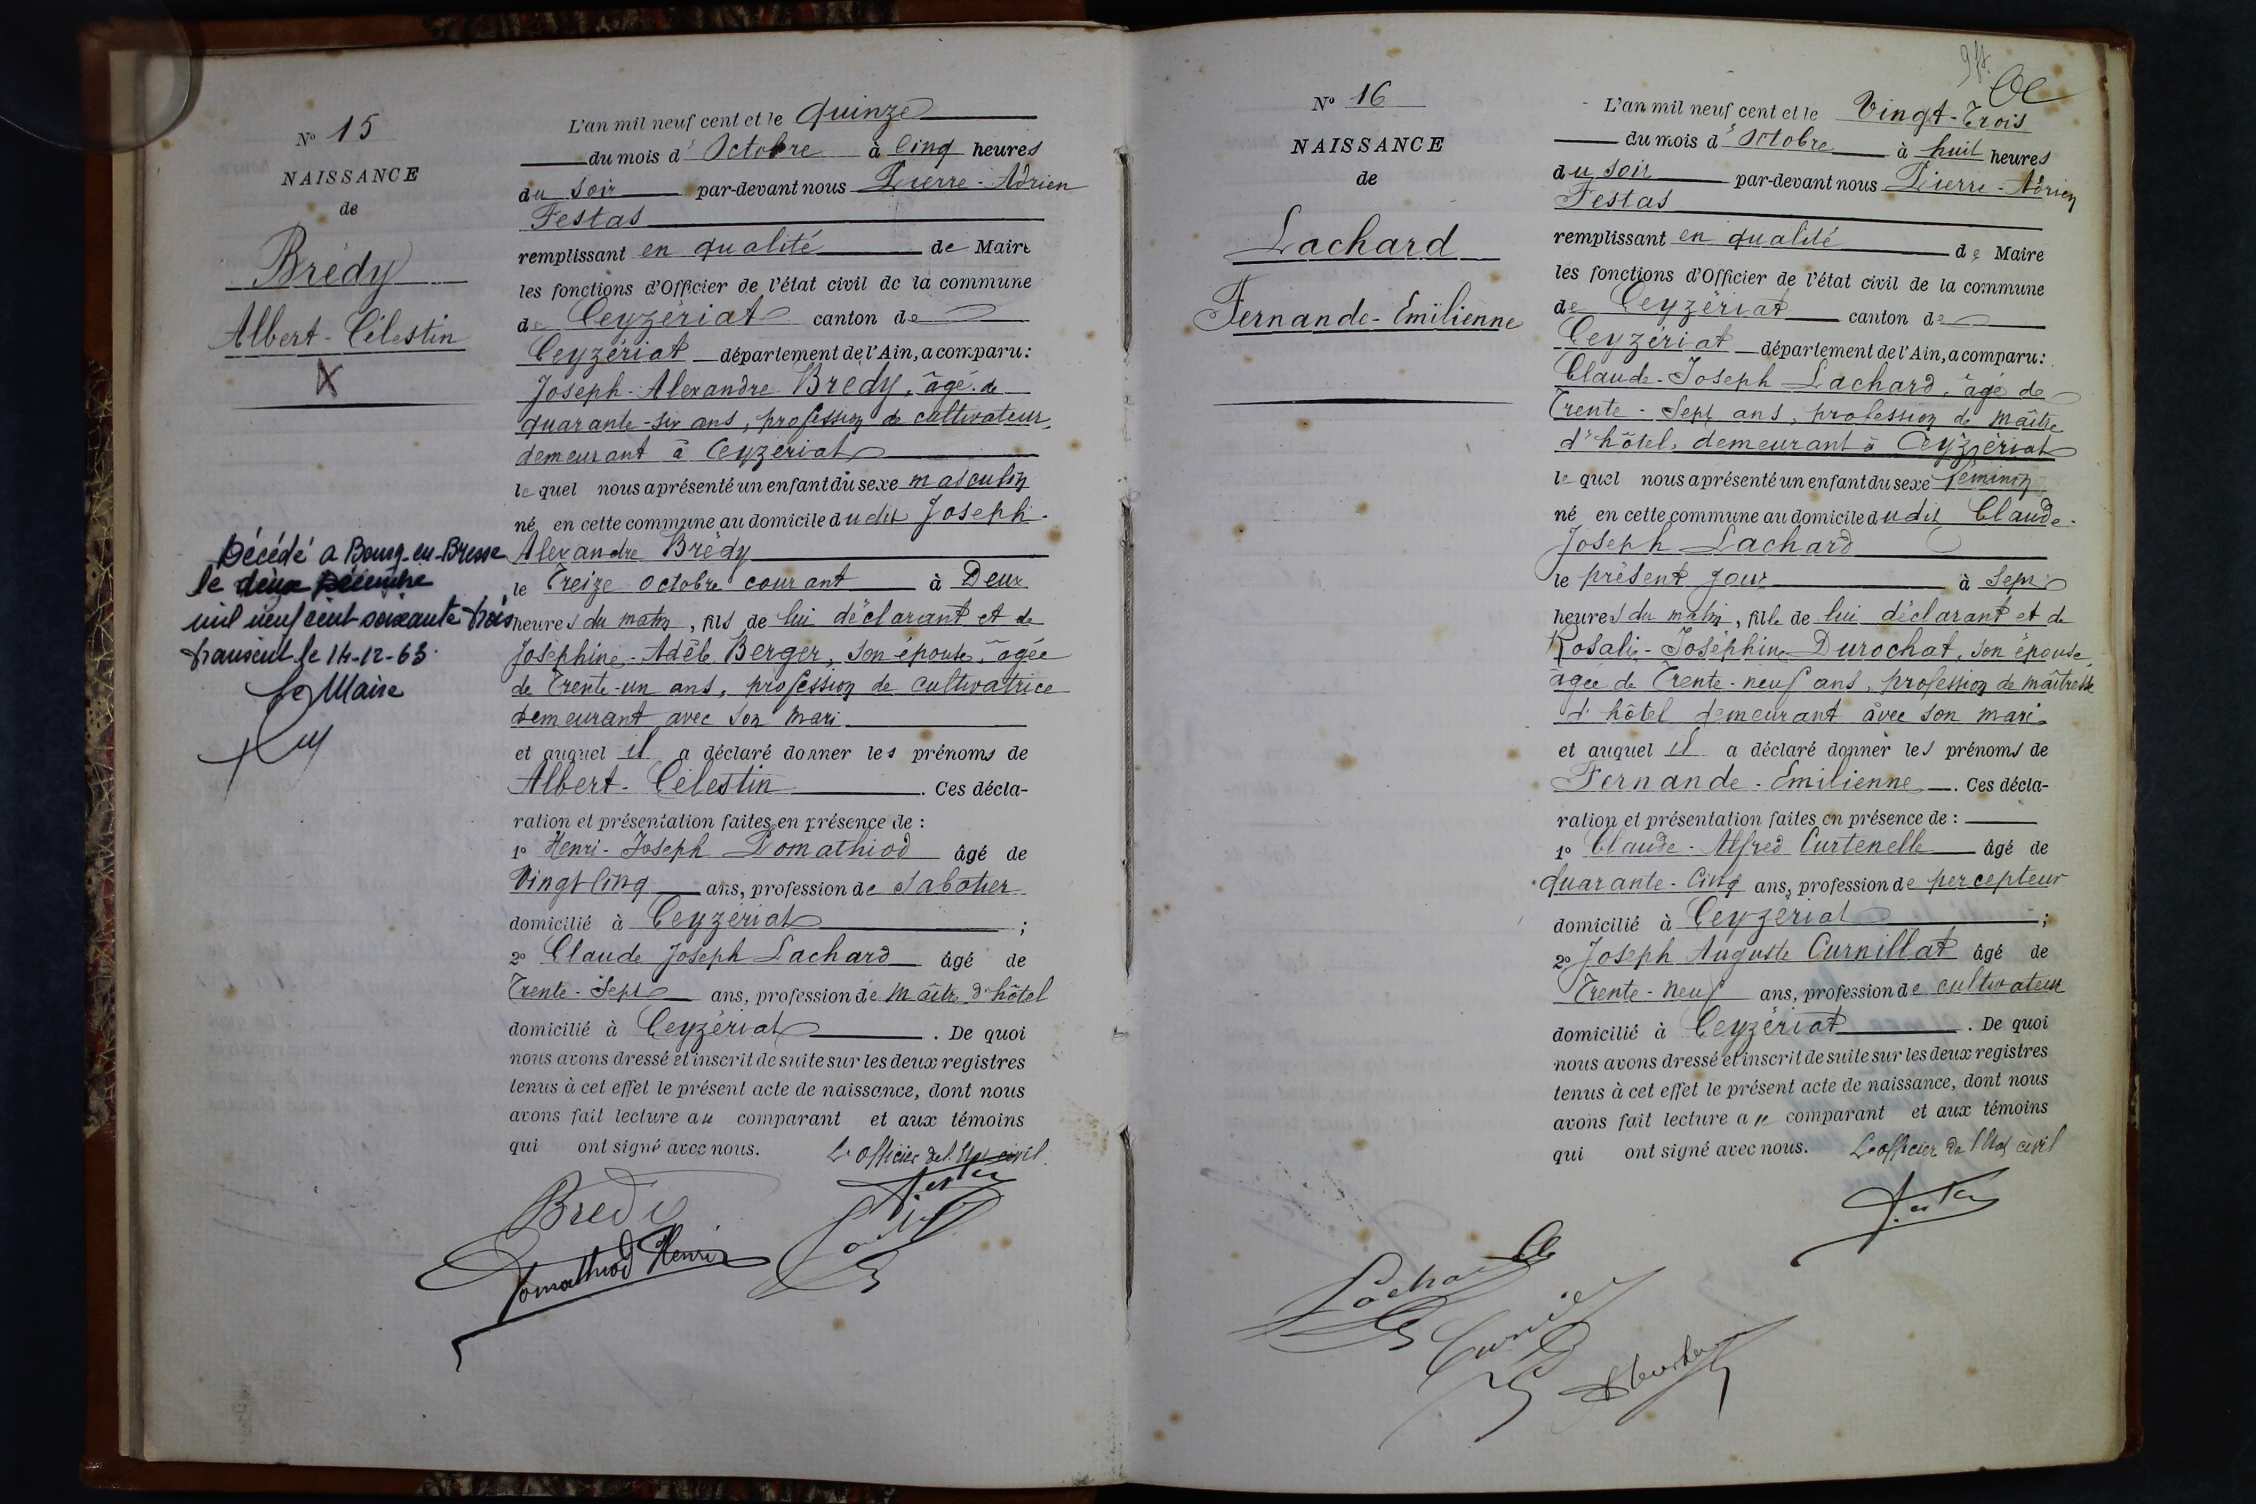 N° 15
NAISSANCE
de
Brédy
Albert-Célestin
X
Décédé a Bourg-en-Bresse
le deux Décembre
mil neuf cent soixante trois
transcrit le 14-12-63.
le Maire
L'an mil neuf cent et le quinze
du mois d'Octobre à Cinq heures
du soir par-devant nous Pierre-Adrien
Festas
remplissant en qualité de Maire
les fonctions d'Officier de l'état civil de la commune
de Ceyzériat canton de
Ceyzériat département de l'Ain, a comparu:
Joseph-Alexandre Brédy, âgé de
quarante-six ans, profession de cultivateur,
demeurant à Ceyzériat
lequel nous a présenté un enfant du sexe masculin
né en cette commune au domicile dudit Joseph-
Alexandre Brédy
le Treize octobre courant à Deux
heures du matin, fils de lui déclarant et de
Joséphine-Adèle Berger, son épouse, âgée
de Trente-un ans, profession de cultivatrice
demeurant avec son mari
et auquel il a déclaré donner les prénoms de
Albert-Célestin. Ces décla-
ration et présentation faites en présence de :
1° Henri-Joseph Pomathiod âgé de
Vingt cinq ans, profession de sabotier
domicilié à Ceyzériat ;
2° Claude Joseph Lachard âgé de
Trente-Sept ans, profession de maître d'hôtel
domicilié à Ceyzériat. De quoi
nous avons dressé et inscrit de suite sur les deux registres
tenus à cet effet le présent acte de naissance, dont nous
avons fait lecture au comparant et aux témoins
qui ont signé avec nous. L'officier de l'état civil
Festas
Bredy
Pomathiod Henri
N° 16
NAISSANCE
de
Lachard
Fernande-Emilienne
L'an mil neuf cent et le Vingt-Trois
du mois d'Octobre à huit heures
du soir par-devant nous Pierre-Adrien
Festas
remplissant en qualité de Maire
les fonctions d'Officier de l'état civil de la commune
de Ceyzériat canton de
Ceyzériat département de l'Ain, a comparu:
Claude-Joseph Lachard, âgé de
Trente-Sept ans, profession de maître
d'hôtel, demeurant à Ceyzériat
lequel nous a présenté un enfant du sexe féminin
né en cette commune au domicile dudit Claude-
Joseph Lachard
le présent jour à sept
heures du matin, fille de lui déclarant et de
Rosalie-Joséphine Durochat, son épouse,
âgée de Trente-neuf ans, profession de maîtresse
d'hôtel demeurant avec son mari
et auquel il a déclaré donner les prénoms de
Fernande-Emilienne. Ces décla-
ration et présentation faites en présence de :
1° Claude-Alfred Curtenelle âgé de
quarante-Cinq ans, profession de percepteur
domicilié à Ceyzériat ;
2° Joseph Auguste Curnillat âgé de
Trente-neuf ans, profession de cultivateur
domicilié à Ceyzériat. De quoi
nous avons dressé et inscrit de suite sur les deux registres
tenus à cet effet le présent acte de naissance, dont nous
avons fait lecture au comparant et aux témoins
qui ont signé avec nous. L'officier de l'état civil
Festas
Lachard